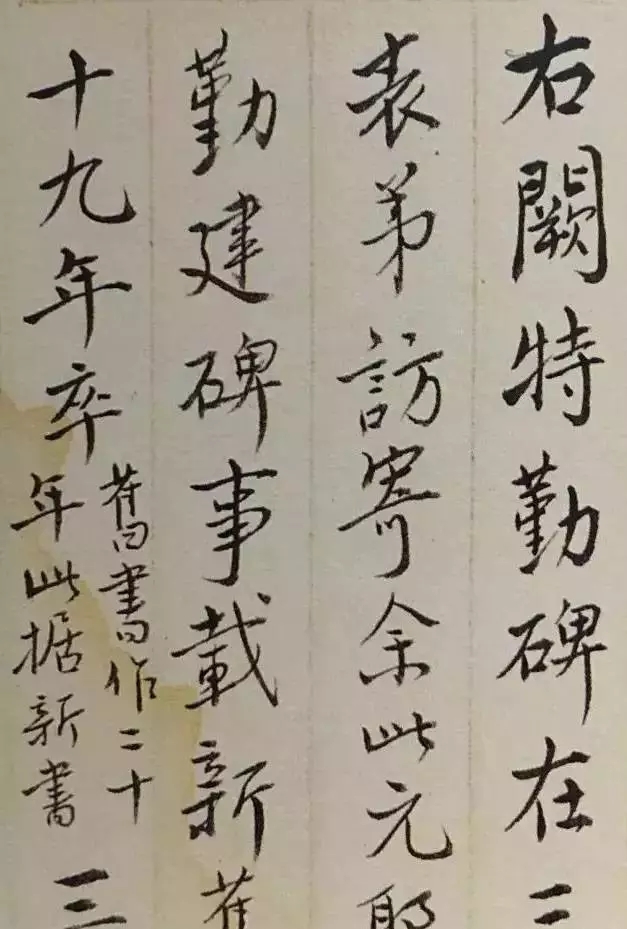 右闕特勤碑在二
表弟訪寄余此元
勤建碑事載新舊
十九年卒
舊書作二十
年此据新書
三